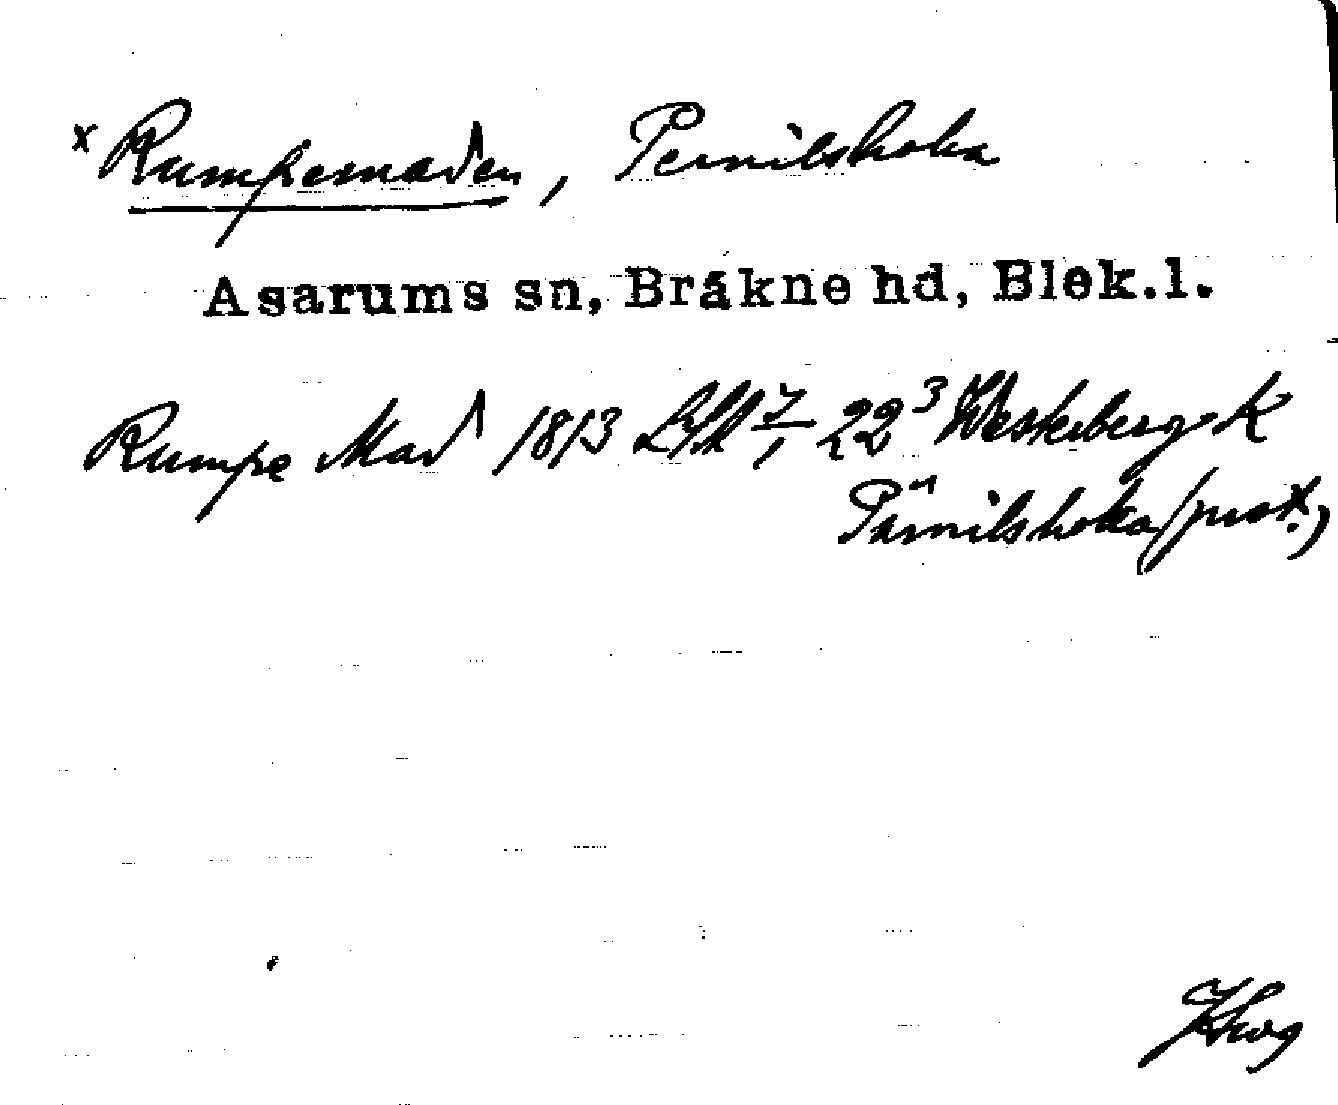 x Rumpemaden, Pernilshoka
Asarums sn, Bräkne hd, Blek.l.
Rumpe Mad 1813 7/1 22³ Westerberg K
Pärnilshoka (prot.)